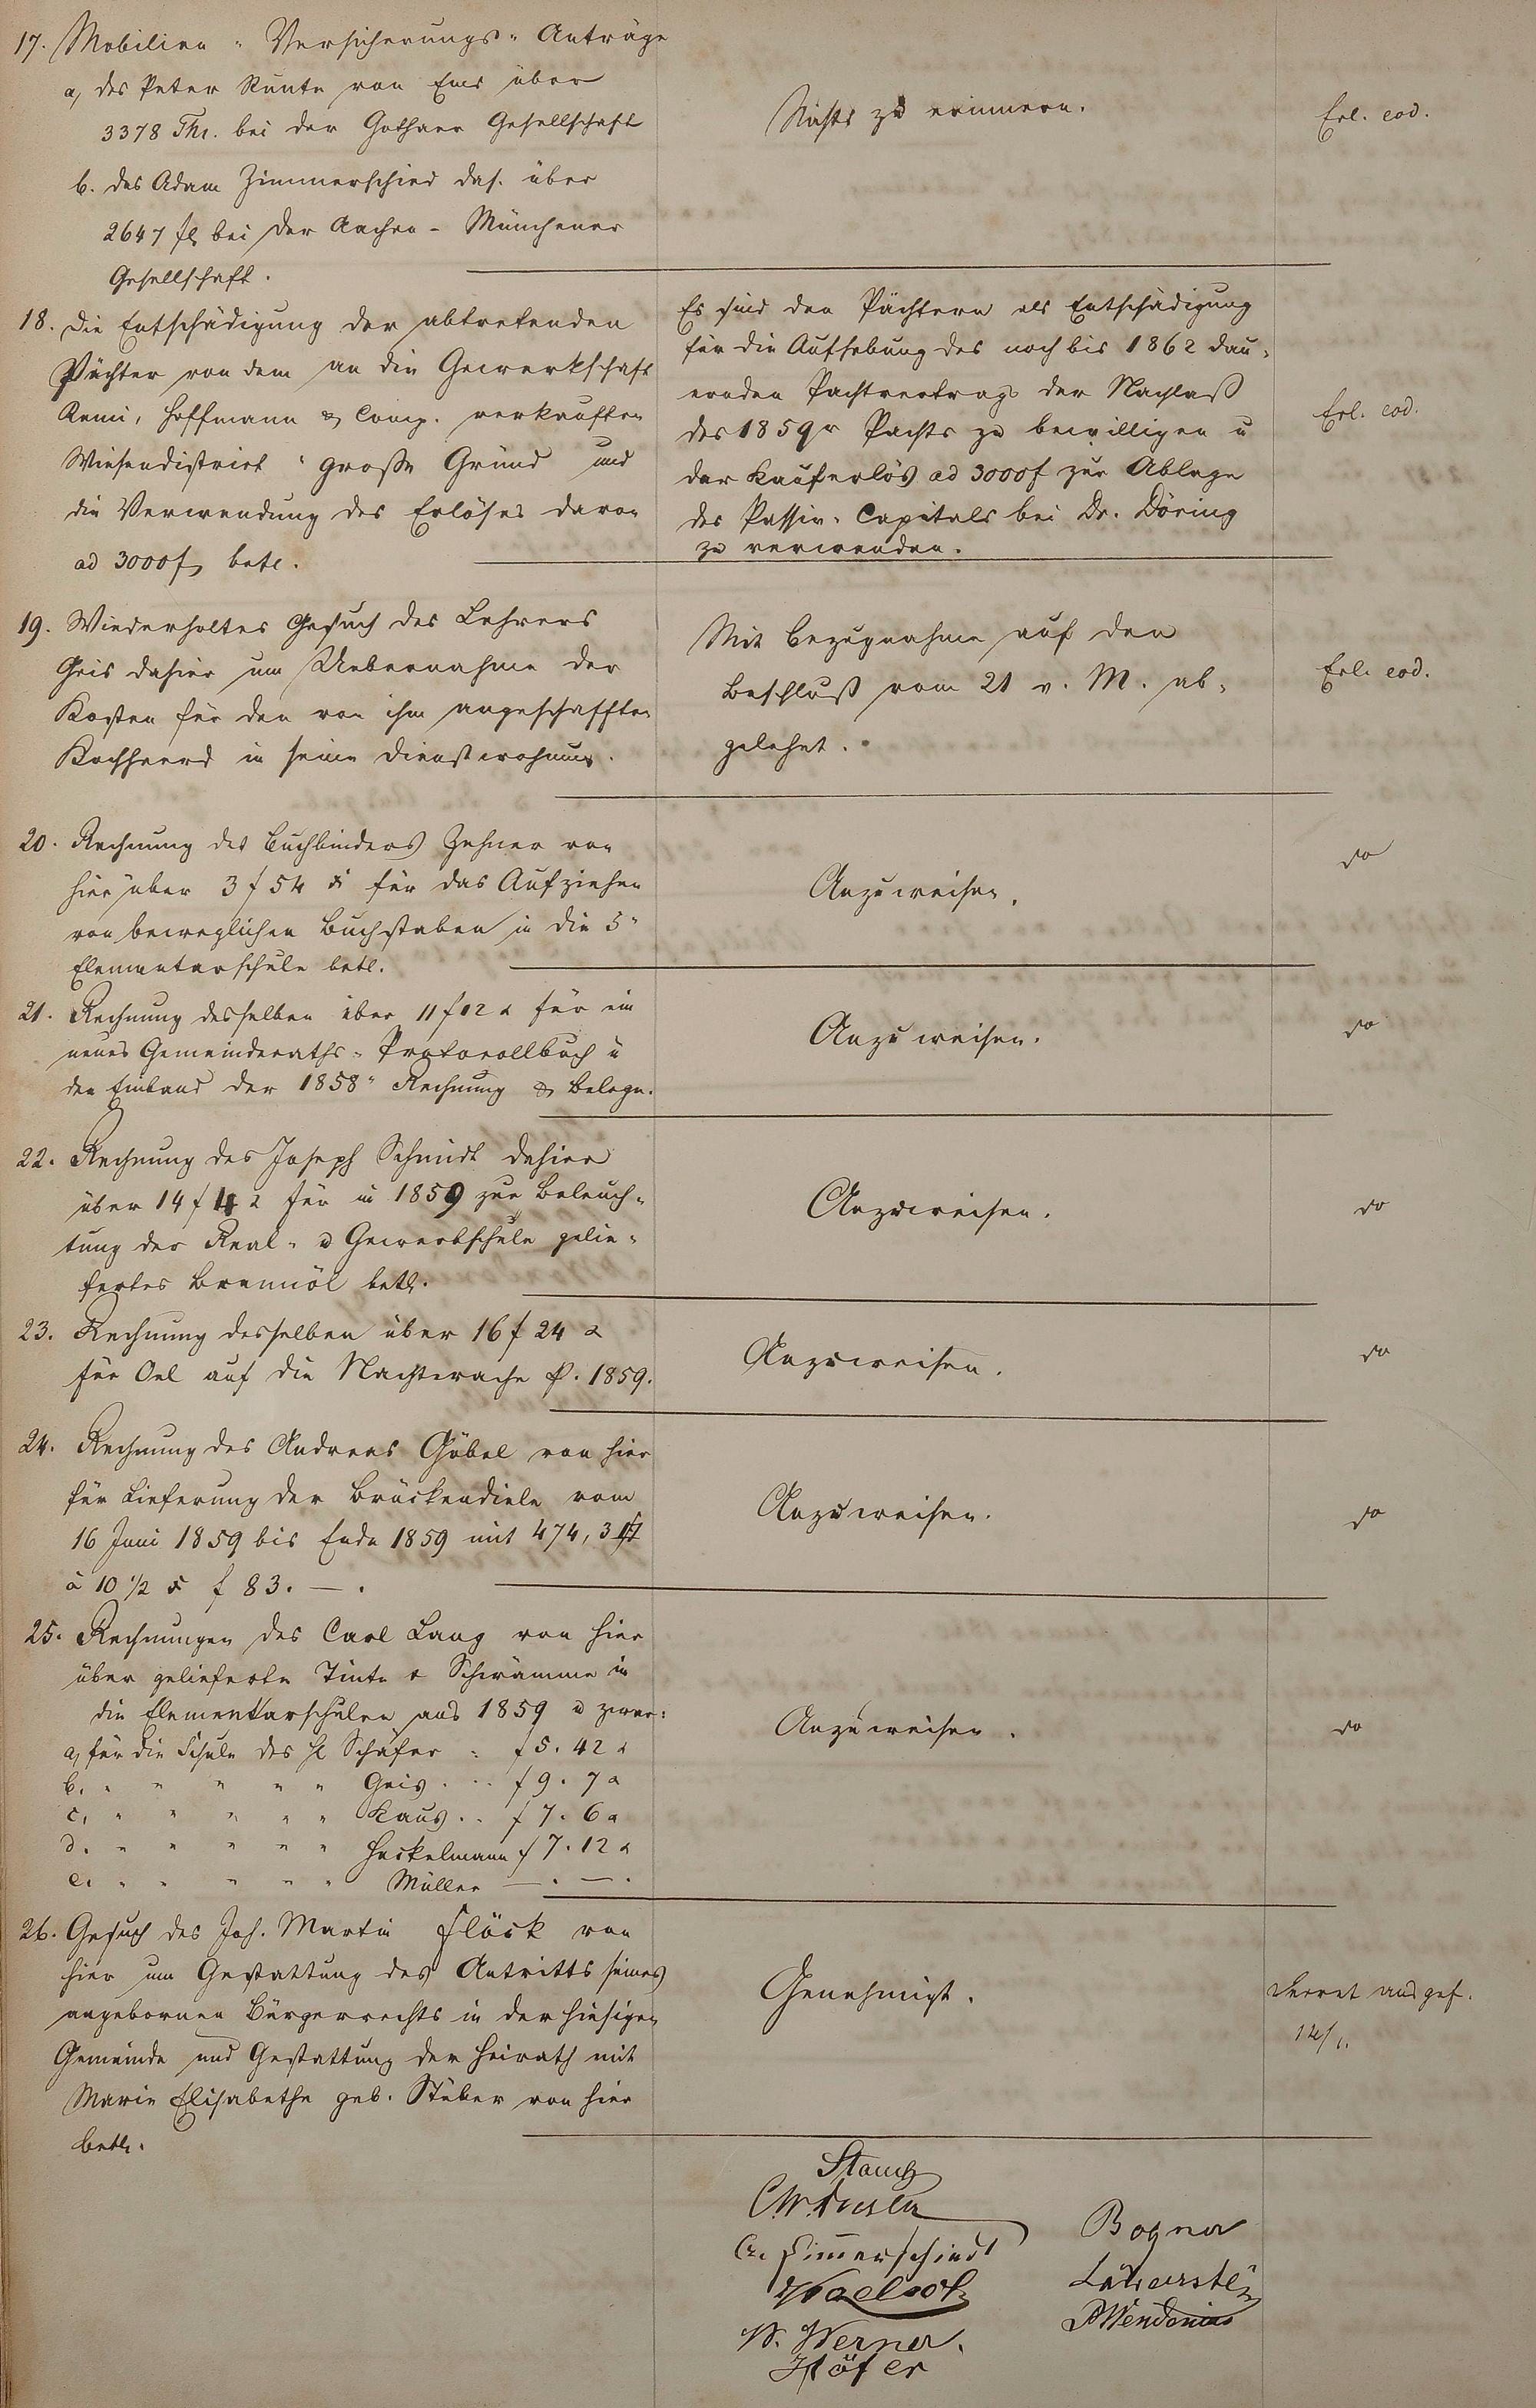 17. Mobilien- Versicherungs- Anträge
a, des Peter Runte von Ems über
3378 Thr. bei der Gothaer Gesellschaft
b. des Adam Zimmerschied das. über
2647 fl. bei der Aachen-Münchener
Gesellschaft.
Nichts zu erinnern.
Erl. eod.
18. Die Entschädigung der abtretenden
Pächter von dem an die Gewerkschaft
Remi, Hoffmann & Comp. verkauften
Wiesendistrict "große Grund und
die Verwendung des Erlöses davon
ad 3000 f, betr.
Es sind den Pächtern als Entschädigung
für die Aufhebung des noch bis 1862 dau-
ernden Pachtvertrags der Nachlaß
des 1859r Pachts zu bewilligen u
der Kauferlös ad 3000f zur Ablage
des Passiv-Capitals bei Dr. Döring
zu verwenden.
Erl. eod.
19. Wiederholtes Gesuch des Lehrers
Geis dahier um Uebernahme der
Kosten für den von ihm angeschafften
Kochheerd in seine Dienstwohnung.
Mit Bezugnahme auf den
Beschluß vom 21 v. M. ab-
gelehnt.
Erl. eod.
20. Rechnung des Buchbinders Zehner von
hier über 3 f 54 x für das Aufziehen
von beweglichen Buchstaben in die 5"
Elementarschule betr.
Anzuweisen.
do
21. Rechnung desselben über 11 f 12 x für ein
neues Gemeinderaths-Protocollbuch u
den Einband der 1858r Rechnung & Belege.
Anzuweisen.
do
22. Rechnung des Joseph Schmidt dahier
über 14 f 42 für in 1859 zur Beleuch-
tung der Real- u Gewerbschule gelie-
fertes Brennöl betr.
Anzuweisen.
do
23. Rechnung desselben über 16 f 24 x
für Oel auf die Nachtwache p. 1859.
Anzuweisen.
do
24. Rechnung des Andreas Göbel von hier
für Lieferung der Brückendiele vom
16 Juni 1859 bis Ende 1859 mit 474,3
à 10 1/2 x f 83. — .
Anzuweisen.
do
25. Rechnungen des Carl Lang von hier
über gelieferte Tinte & Schwämme in
die Elementarschulen aus 1859 u zwar:
a, für die Schule des H Schäfer - f 5. 42 x
b. " " " " " Geis . .. f 9. 7 x
c, " " " " " Kaus . . f 7. 6 x
d. " " " " " Heckelmann f 7. 12 x
e. " " " " " Müller — . — .
Anzuweisen.
do
26. Gesuch des Joh. Martin Flöck von
hier um Gestattung des Antritts seines
angebornen Bürgerrechts in der hiesigen
Gemeinde und Gestattung der Heirath mit
Marie Elisabethe geb. Stüber von hier
betr.
Genehmigt.
Decret ausgef.
12/1.
A. Zimmerschied
W. Werner.
Höfer
Bogner